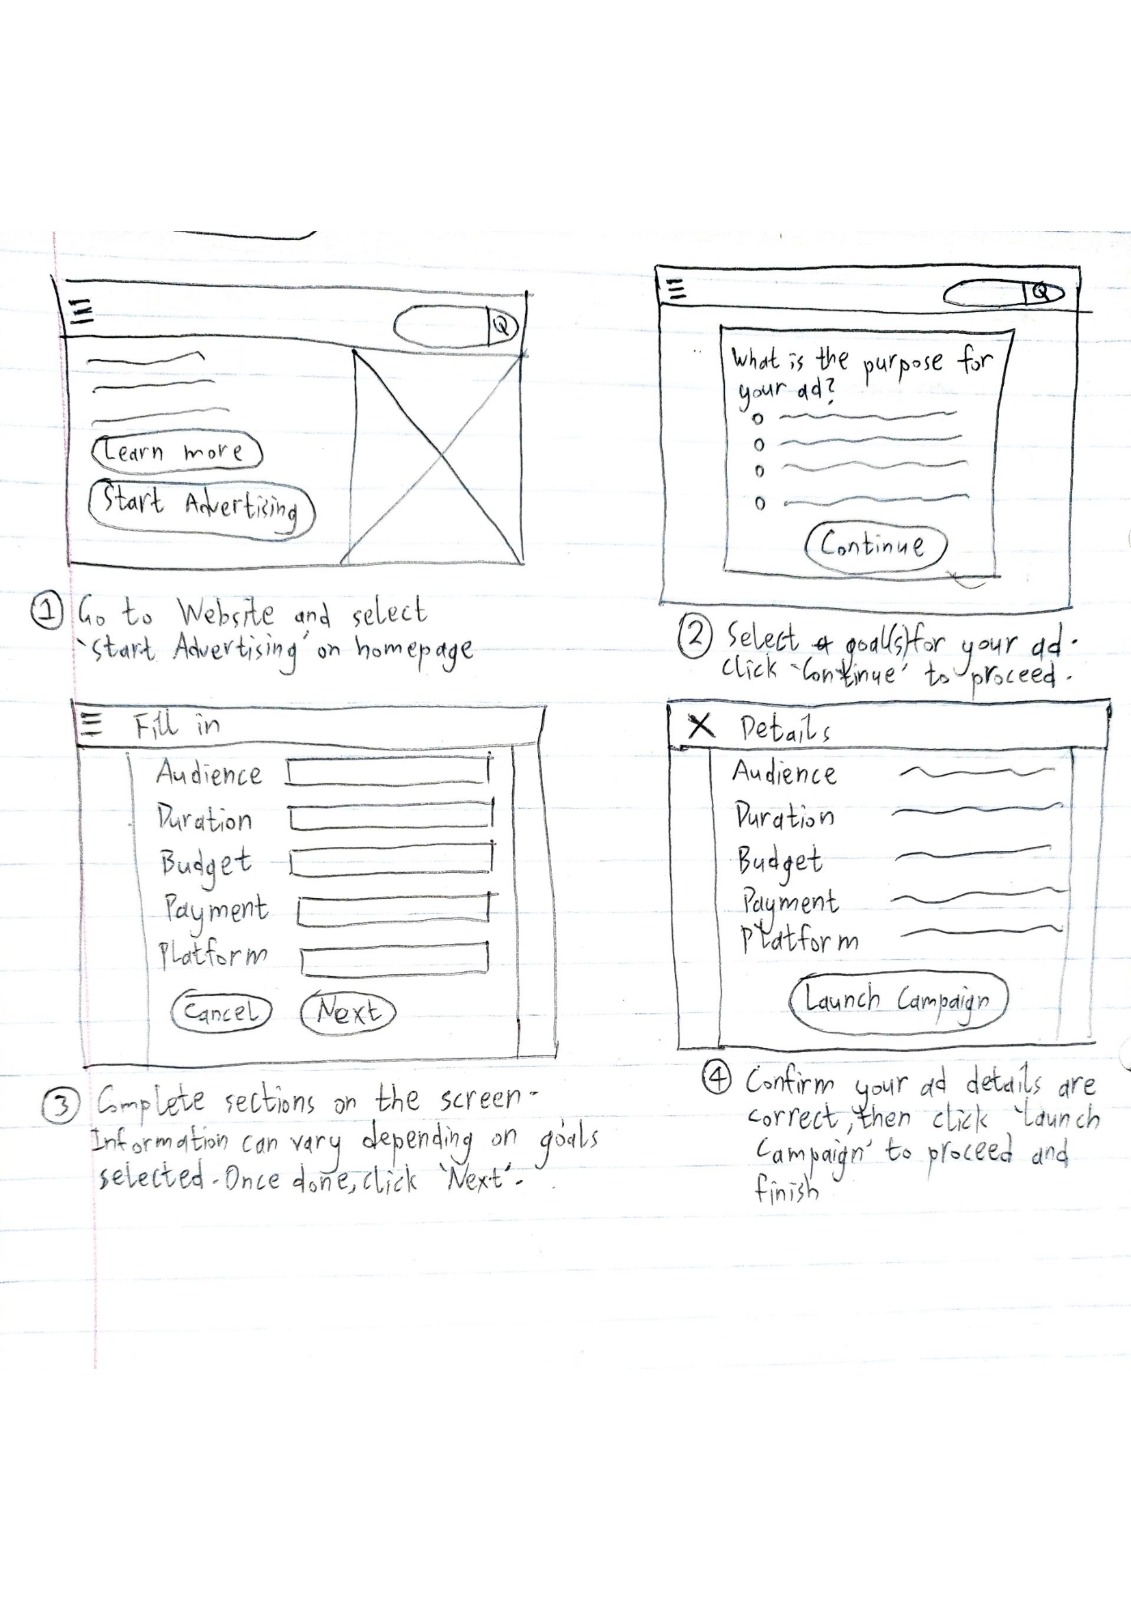 Learn more
Start Advertising
① Go to Website and select
'Start Advertising' on homepage
What is the purpose for
your ad?
Continue
② Select goal(s) for your ad.
click 'Continue' to proceed.
Fill in
Audience
Duration
Budget
Payment
Platform
Cancel Next
③ Complete sections on the screen.
Information can vary depending on goals
selected. Once done, click 'Next'.
X Details
Audience
Duration
Budget
Payment
Platform
Launch Campaign
④ Confirm your ad details are
correct, then click 'Launch
Campaign' to proceed and
finish